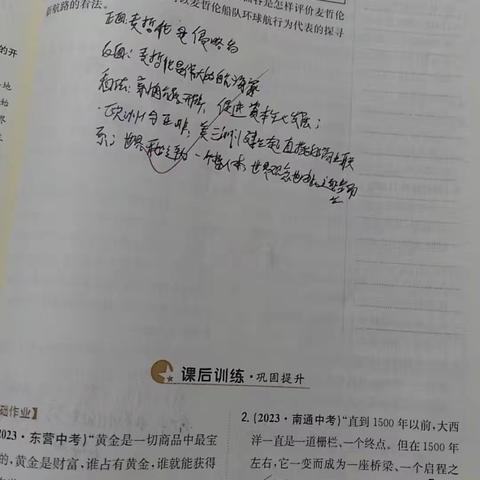 容是怎样评价麦哲伦
麦哲伦船队环球航行为代表的探寻
新航路的看法。
正面:麦哲伦是侵略者
反面:麦哲伦是伟大的航海家
看法:新航路开辟,促进资本主义发展;
欧洲与亚非,美三洲建立起直接的商业联
系;世界开始连为一个整体,世界观念
的开
地
始
尽
课后训练·巩固提升
础作业】
023·东营中考)“黄金是一切商品中最宝
的,黄金是财富,谁占有黄金,谁就能获得
2.(2023·南通中考)“直到 1500 年以前,大西
洋一直是一道栅栏、一个终点。但在 1500 年
左右,它一变而成为一座桥梁、一个启程之